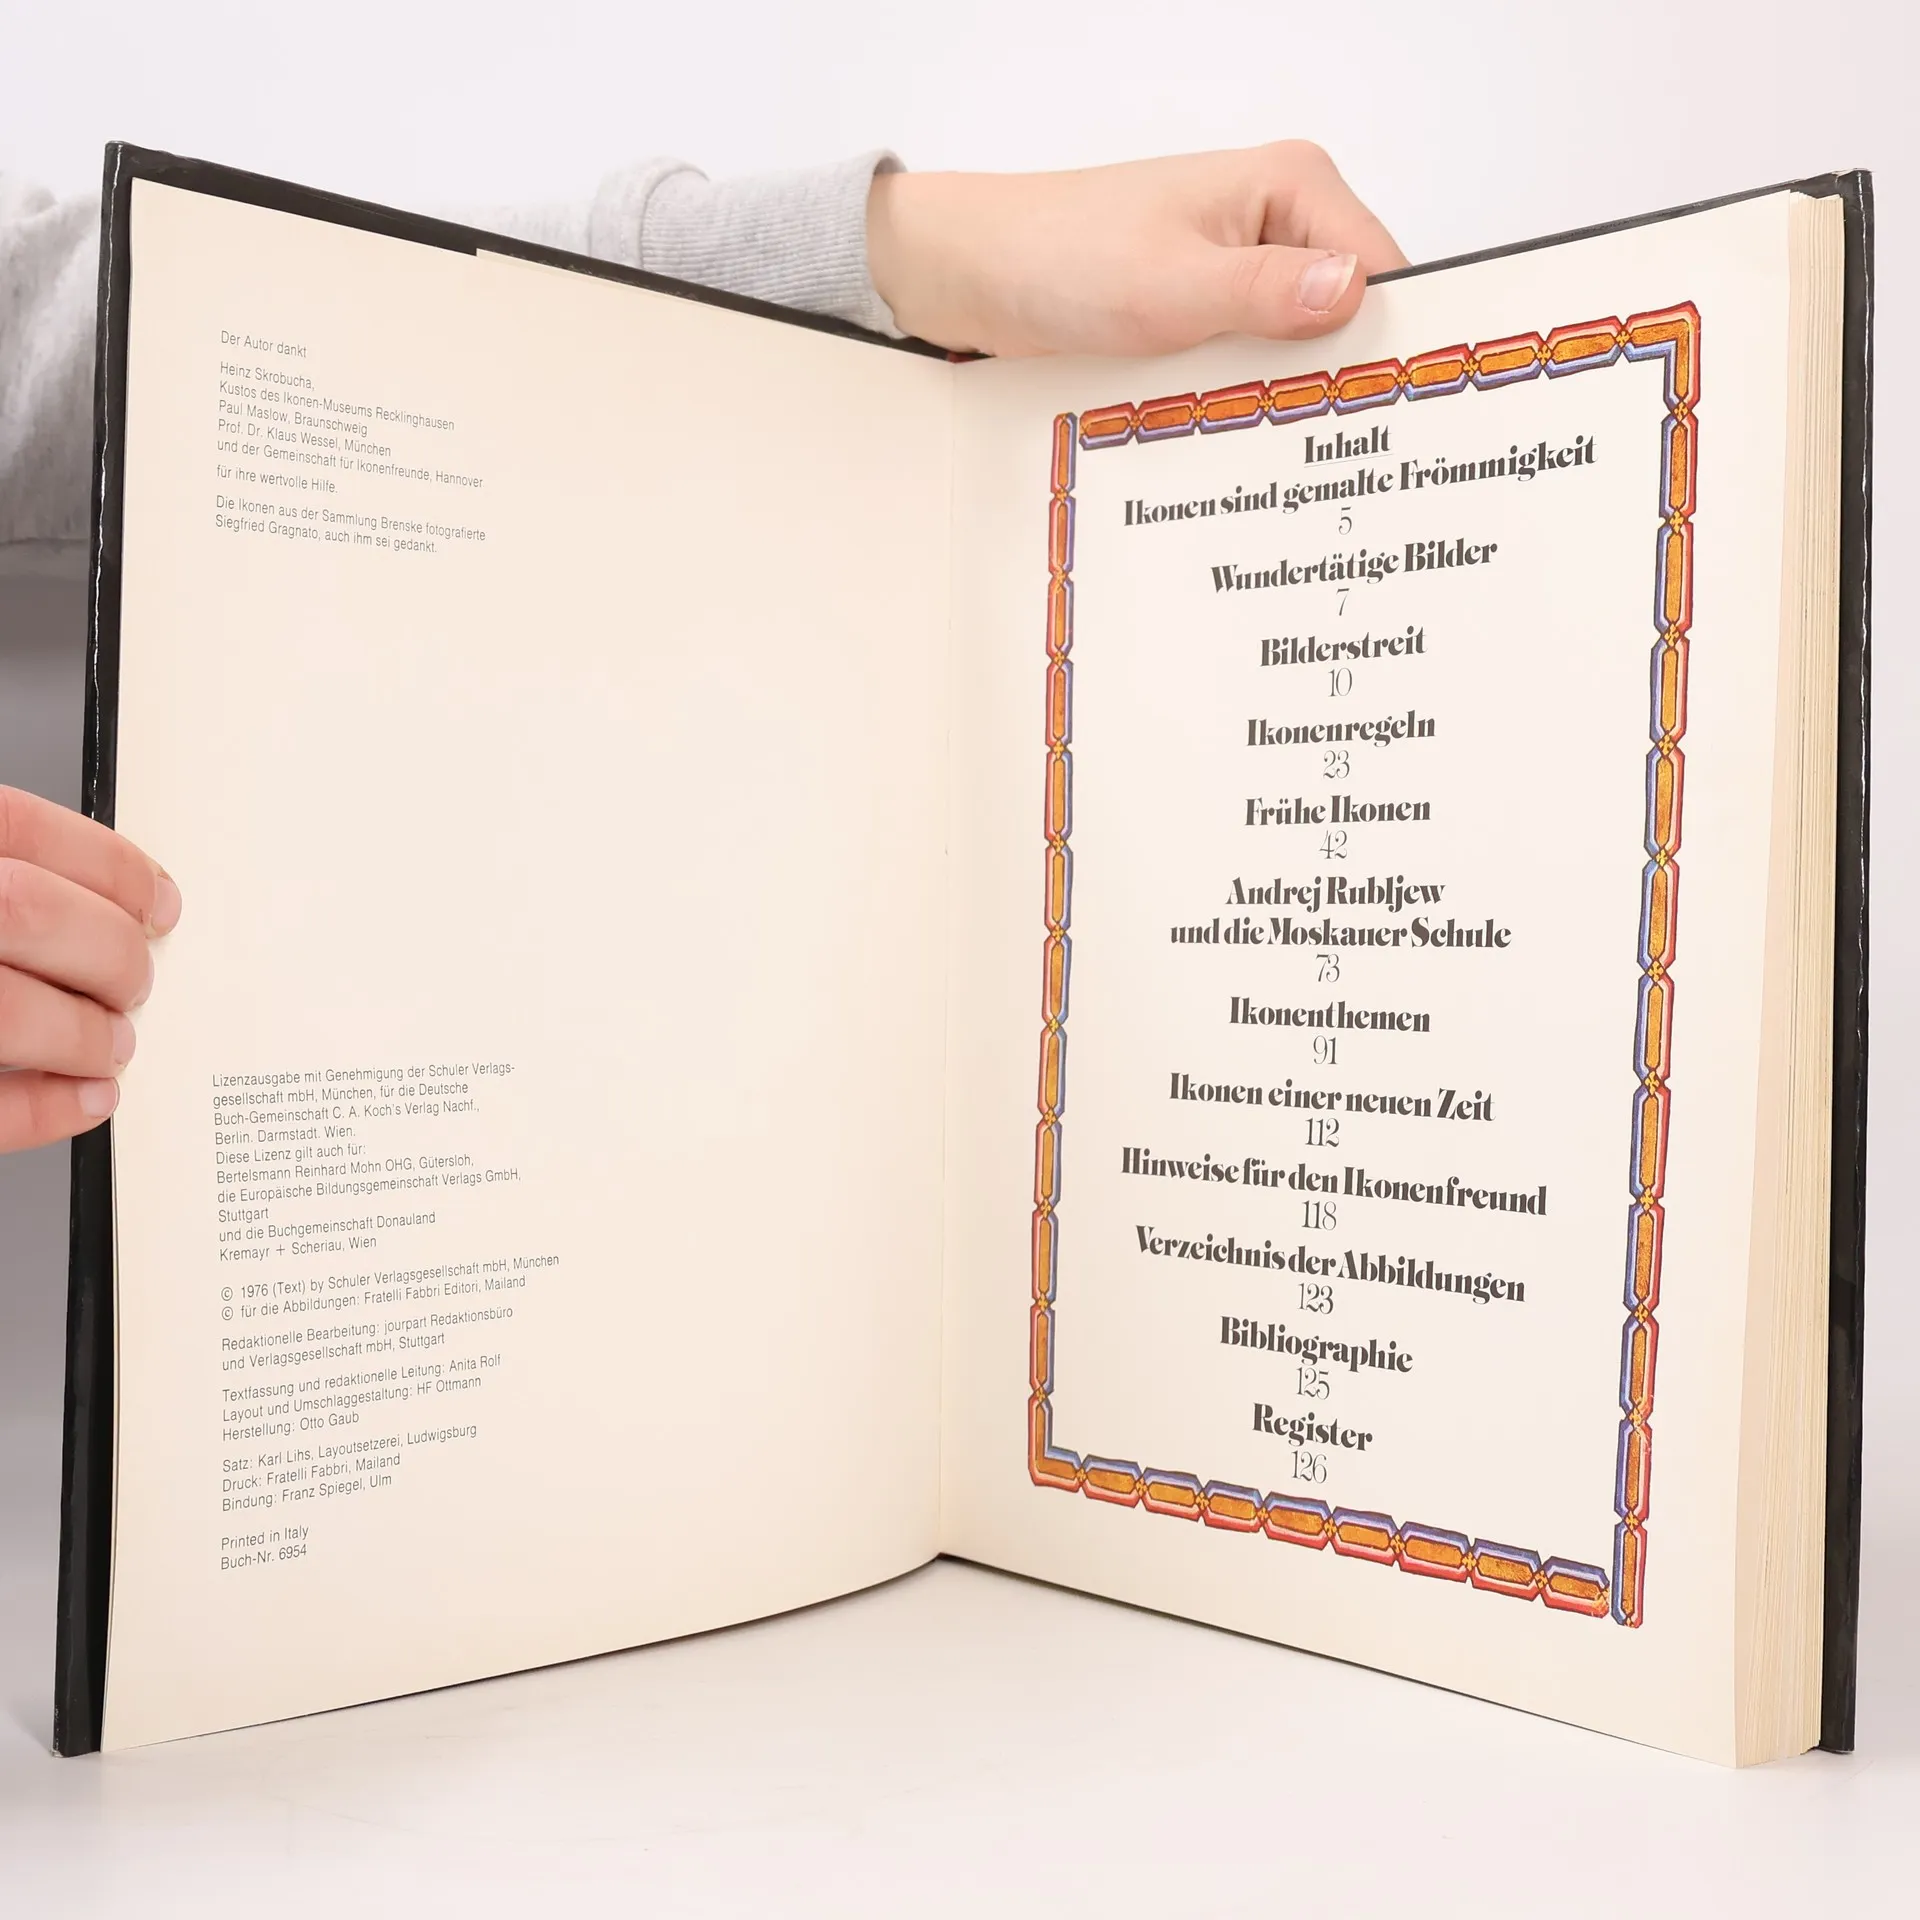 Der Autor dankt
Heinz Skrobucha,
Kustos des Ikonen-Museums Recklinghausen
Paul Maslow, Braunschweig
Prof. Dr. Klaus Wessel, München
und der Gemeinschaft für Ikonenfreunde, Hannover
für ihre wertvolle Hilfe.
Die Ikonen aus der Sammlung Brenske fotografierte
Siegfried Gragnato, auch ihm sei gedankt.
Lizenzausgabe mit Genehmigung der Schuler Verlags-
gesellschaft mbH, München, für die Deutsche
Buch-Gemeinschaft C. A. Koch's Verlag Nachf.,
Berlin. Darmstadt. Wien.
Diese Lizenz gilt auch für:
Bertelsmann Reinhard Mohn OHG, Gütersloh,
die Europäische Bildungsgemeinschaft Verlags GmbH,
Stuttgart
und die Buchgemeinschaft Donauland
Kremayr + Scheriau, Wien
© 1976 (Text) by Schuler Verlagsgesellschaft mbH, München
© für die Abbildungen: Fratelli Fabbri Editori, Mailand
Redaktionelle Bearbeitung: jourpart Redaktionsbüro
und Verlagsgesellschaft mbH, Stuttgart
Textfassung und redaktionelle Leitung: Anita Rolf
Layout und Umschlaggestaltung: HF Ottmann
Herstellung: Otto Gaub
Satz: Karl Lihs, Layoutsetzerei, Ludwigsburg
Druck: Fratelli Fabbri, Mailand
Bindung: Franz Spiegel, Ulm
Printed in Italy
Buch-Nr. 6954
Inhalt
Ikonen sind gemalte Frömmigkeit
5
Wundertätige Bilder
7
Bilderstreit
10
Ikonenregeln
23
Frühe Ikonen
42
Andrej Rubljew
und die Moskauer Schule
73
Ikonenthemen
91
Ikonen einer neuen Zeit
112
Hinweise für den Ikonenfreund
118
Verzeichnis der Abbildungen
123
Bibliographie
125
Register
126